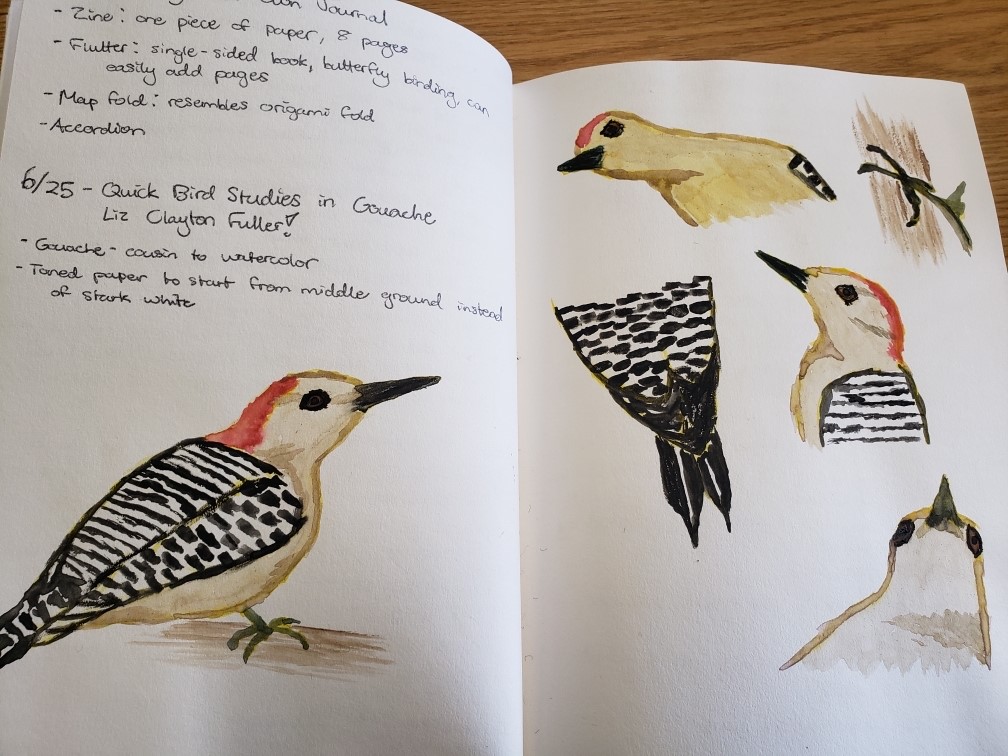 Journal
- Zine: one piece of paper, 8 pages
- Flutter: single-sided book, butterfly binding, can
easily add pages
- Map fold: resembles origami fold
- Accordion
6/25 - Quick Bird Studies in Gouache
Liz Clayton Fuller!
- Gouache - cousin to watercolor
- Toned paper to start from middle ground instead
of stark white